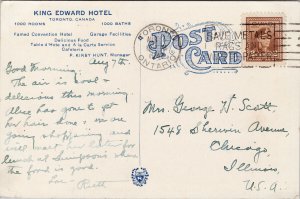 KING EDWARD HOTEL
TORONTO, CANADA
1000 ROOMS 1000 BATHS
Famed Convention Hotel Garage Facilities
Delicious Food
Table d'Hote and A la Carte Service
Cafeteria
P. KIRBY HUNT, Manager
POST
CARD
TORONTO
ONTARIO
SAVE METALS
RAGS
Aug 7th.
Good Morning
The air is
delicious this morning.
Alice has gone to get
her hair done & we are
going shopping and
will meet her later for
lunch at Simpsons where
the food is good.
Love Ruth
Mrs. George H. Scott,
1548 Sherwin Avenue,
Chicago,
Illinois,
U.S.A.